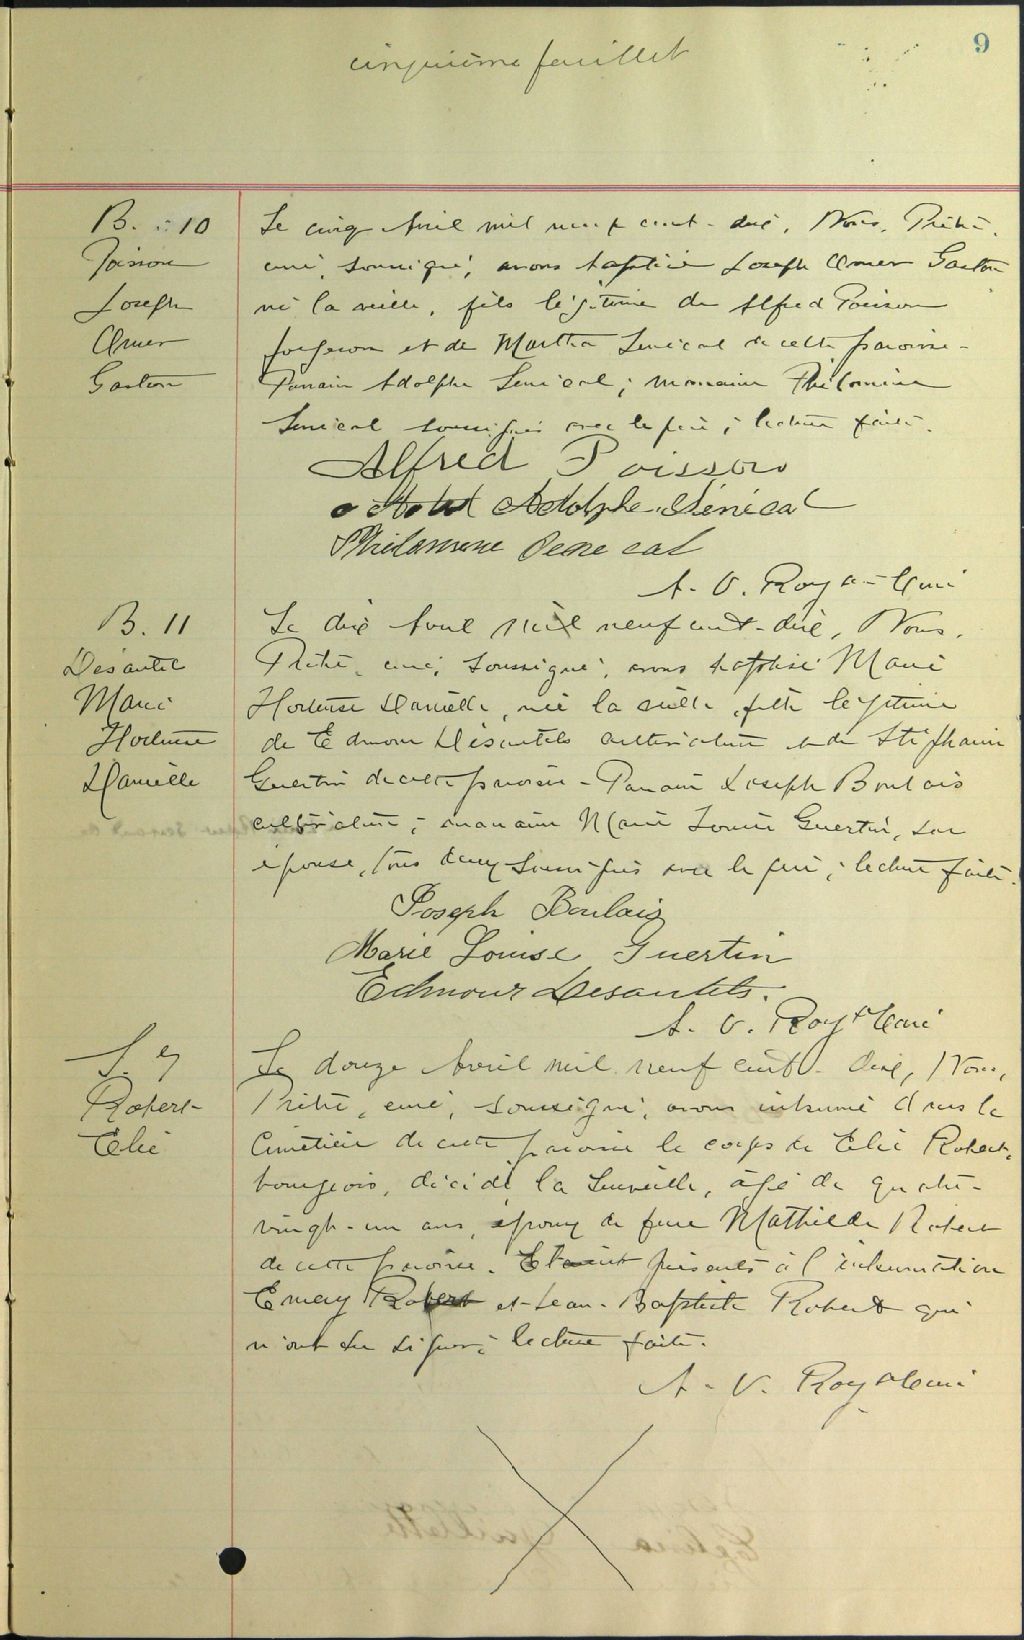 cinquième feuillet
9
B. 10
Poisson
Joseph
Omer
Gaston
Le cinq Avril mil neuf cent-dix, Nous, Prêtre,
curé, soussigné, avons baptisé Joseph Omer Gaston
né la veille, fils légitime de Alfred Poisson
forgeron et de Martha Senécal de cette paroisse -
Parrain Adolphe Senécal; marraine Philomène
Senécal soussignés avec le père; lecture faite.
Alfred Poisson
Adolphe Sénécal
Philomene Senecal
A. V. Roy ptre Curé
B. 11
Desautel
Marie
Hortense
Danielle
Le dix Avril mil neuf cent-dix, Nous,
Prêtre, curé, soussigné, avons baptisé Marie
Hortense Danielle, née la veille, fille légitime
de Edmour Désautels cultivateur et de Stéphanie
Guertin de cette paroisse - Parrain Joseph Boulais
cultivateur; marraine Marie Louise Guertin, son
épouse, tous deux soussignés avec le père; lecture faite.
Joseph Boulais
Marie Louise Guertin
Edmour Desautels.
A. V. Roy ptre Curé
S. 7
Robert
Elie
Le douze Avril mil neuf cent-dix, Nous,
Prêtre, curé, soussigné, avons inhumé dans le
Cimetière de cette paroisse le corps de Elie Robert,
bourgeois, décédé la surveille, âgé de quatre-
vingt-un ans, époux de feue Mathilde Robert
de cette paroisse. Etaient présents à l'inhumation
Emery Robert et Jean-Baptiste Robert qui
n'ont su signer; lecture faite.
A. V. Roy ptre Curé